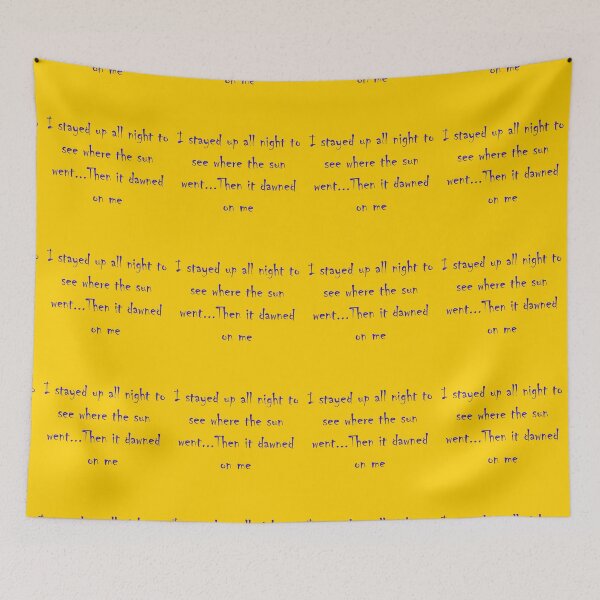 on me
on me
on me
on me
I stayed up all night to
see where the sun
went...Then it dawned
on me
I stayed up all night to
see where the sun
went...Then it dawned
on me
I stayed up all night to
see where the sun
went...Then it dawned
on me
I stayed up all night to
see where the sun
went...Then it dawned
on me
I stayed up all night to
see where the sun
went...Then it dawned
on me
I stayed up all night to
see where the sun
went...Then it dawned
on me
I stayed up all night to
see where the sun
went...Then it dawned
on me
I stayed up all night to
see where the sun
went...Then it dawned
on me
I stayed up all night to
see where the sun
went...Then it dawned
on me
I stayed up all night to
see where the sun
went...Then it dawned
on me
I stayed up all night to
see where the sun
went...Then it dawned
on me
I stayed up all night to
see where the sun
went...Then it dawned
on me